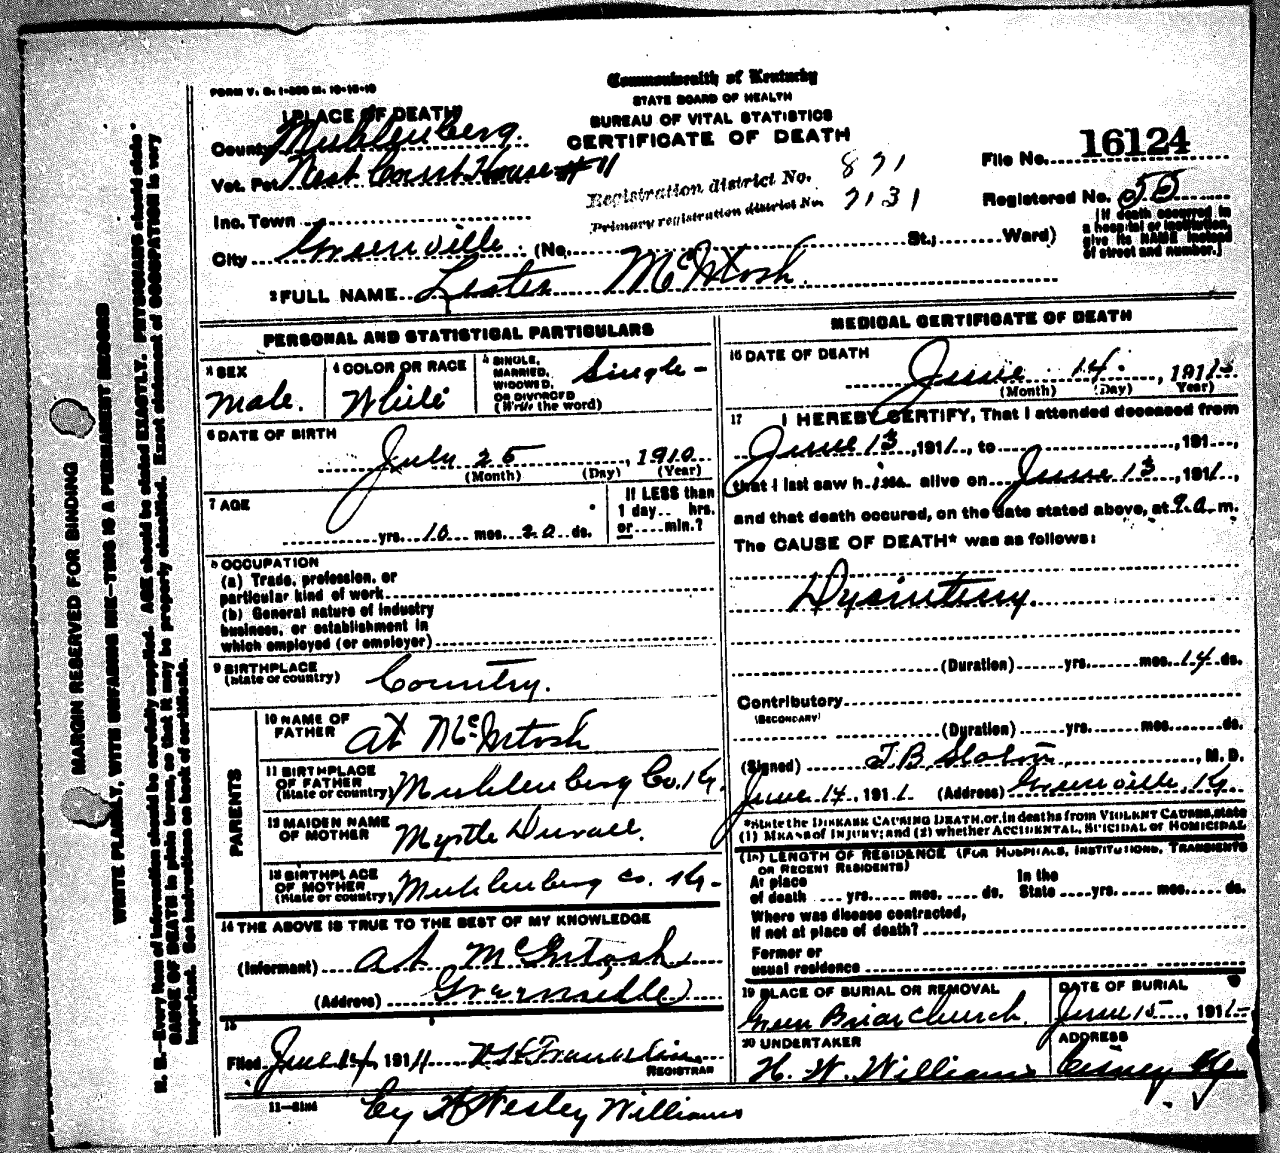 FORM V. S. 1-350 M. 10-15-10
Commonwealth of Kentucky
STATE BOARD OF HEALTH
BUREAU OF VITAL STATISTICS
CERTIFICATE OF DEATH
1 PLACE OF DEATH
County Muhlenberg.
Vot. Pct. West Court House #11
Inc. Town
City Greenville (No. St.; Ward)
Registration district No. 871
Primary registration district No. 7131
File No. 16124
Registered No. 55
[If death occurred in
a hospital or institution,
give its NAME instead
of street and number.]
2 FULL NAME Lester McIntosh.
PERSONAL AND STATISTICAL PARTICULARS
3 SEX
Male.
4 COLOR OR RACE
White
5 SINGLE,
MARRIED,
WIDOWED,
OR DIVORCED
(Write the word)
Single-
6 DATE OF BIRTH
July 25, 1910
(Month) (Day) (Year)
7 AGE
yrs. 10 mos. 20 ds.
If LESS than
1 day hrs.
or min.?
8 OCCUPATION
(a) Trade, profession, or
particular kind of work
(b) General nature of industry
business, or establishment in
which employed (or employer)
9 BIRTHPLACE
(State or country)
Country.
PARENTS
10 NAME OF
FATHER
At McIntosh
11 BIRTHPLACE
OF FATHER
(State or country)
Muhlenberg Co. Ky.
12 MAIDEN NAME
OF MOTHER
Myrtle Duvall.
13 BIRTHPLACE
OF MOTHER
(State or country)
Muhlenberg Co. Ky-
14 THE ABOVE IS TRUE TO THE BEST OF MY KNOWLEDGE
(Informant) At McIntosh
(Address) Greenville
15
Filed June 14, 1911
REGISTRAR
by H Wesley Williams
MEDICAL CERTIFICATE OF DEATH
16 DATE OF DEATH
June 14, 1911
(Month) (Day) (Year)
17 I HEREBY CERTIFY, That I attended deceased from
June 13, 1911, to , 191 ,
that I last saw him alive on June 13, 1911,
and that death occured, on the date stated above, at 9 a m.
The CAUSE OF DEATH* was as follows:
Dysintery.
(Duration) yrs. mos. 14 ds.
Contributory
(SECONDARY)
(Duration) yrs. mos. ds.
(Signed) , M. D.
June 14, 1911 (Address) Greenville, Ky.
*State the DISEASE CAUSING DEATH, or, in deaths from VIOLENT CAUSES, state
(1) MEANS of INJURY; and (2) whether ACCIDENTAL, SUICIDAL or HOMICIDAL
(18) LENGTH OF RESIDENCE (FOR HOSPITALS, INSTITUTIONS, TRANSIENTS
OR RECENT RESIDENTS)
At place In the
of death yrs. mos. ds. State yrs. mos. ds.
Where was disease contracted,
if not at place of death?
Former or
usual residence
19 PLACE OF BURIAL OR REMOVAL
Green Briar Church.
DATE OF BURIAL
June 15, 1911
20 UNDERTAKER
H. W. Williams
ADDRESS
Cisney Ky
MARGIN RESERVED FOR BINDING
WRITE PLAINLY, WITH UNFADING INK—THIS IS A PERMANENT RECORD
N. B.—Every item of information should be carefully supplied. AGE should be stated EXACTLY. PHYSICIANS should state
CAUSE OF DEATH in plain terms, so that it may be properly classified. Exact statement of OCCUPATION is very
important. See instructions on back of certificate.